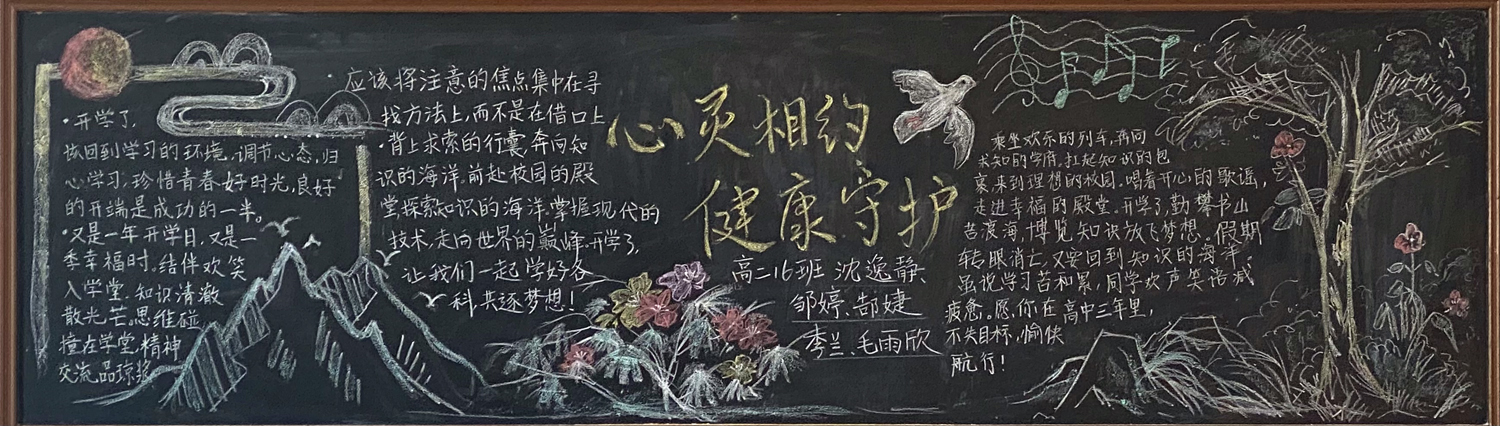 ·开学了,
该回到学习的环境,调节心态,归
心学习,珍惜青春好时光,良好
的开端是成功的一半。
·又是一年开学日,又是一
季幸福时。结伴欢笑
入学堂,知识清澈
散光芒。思维碰
撞在学堂,精神
交流品琼浆
·应该将注意的焦点集中在寻
找方法上,而不是在借口上
·背上求索的行囊,奔向知
识的海洋。前赴校园的殿
堂探索知识的海洋。掌握现代的
技术,走向世界的巅峰。开学了,
让我们一起学好各
科,共逐梦想!
心灵相约
健康守护
高二16班 沈逸静
邹婷、郜婕
李兰、毛雨欣
乘坐欢乐的列车,再向
求知的学府,扛起知识的包
裹,来到理想的校园。唱着开心的歌谣,
走进幸福的殿堂。开学了,勤攀书山
苦渡海,博览知识放飞梦想。假期
转眼消亡,又要回到知识的海洋;
虽说学习苦和累,同学欢声笑语减
疲惫。愿你在高中三年里,
不失目标,愉快
航行!